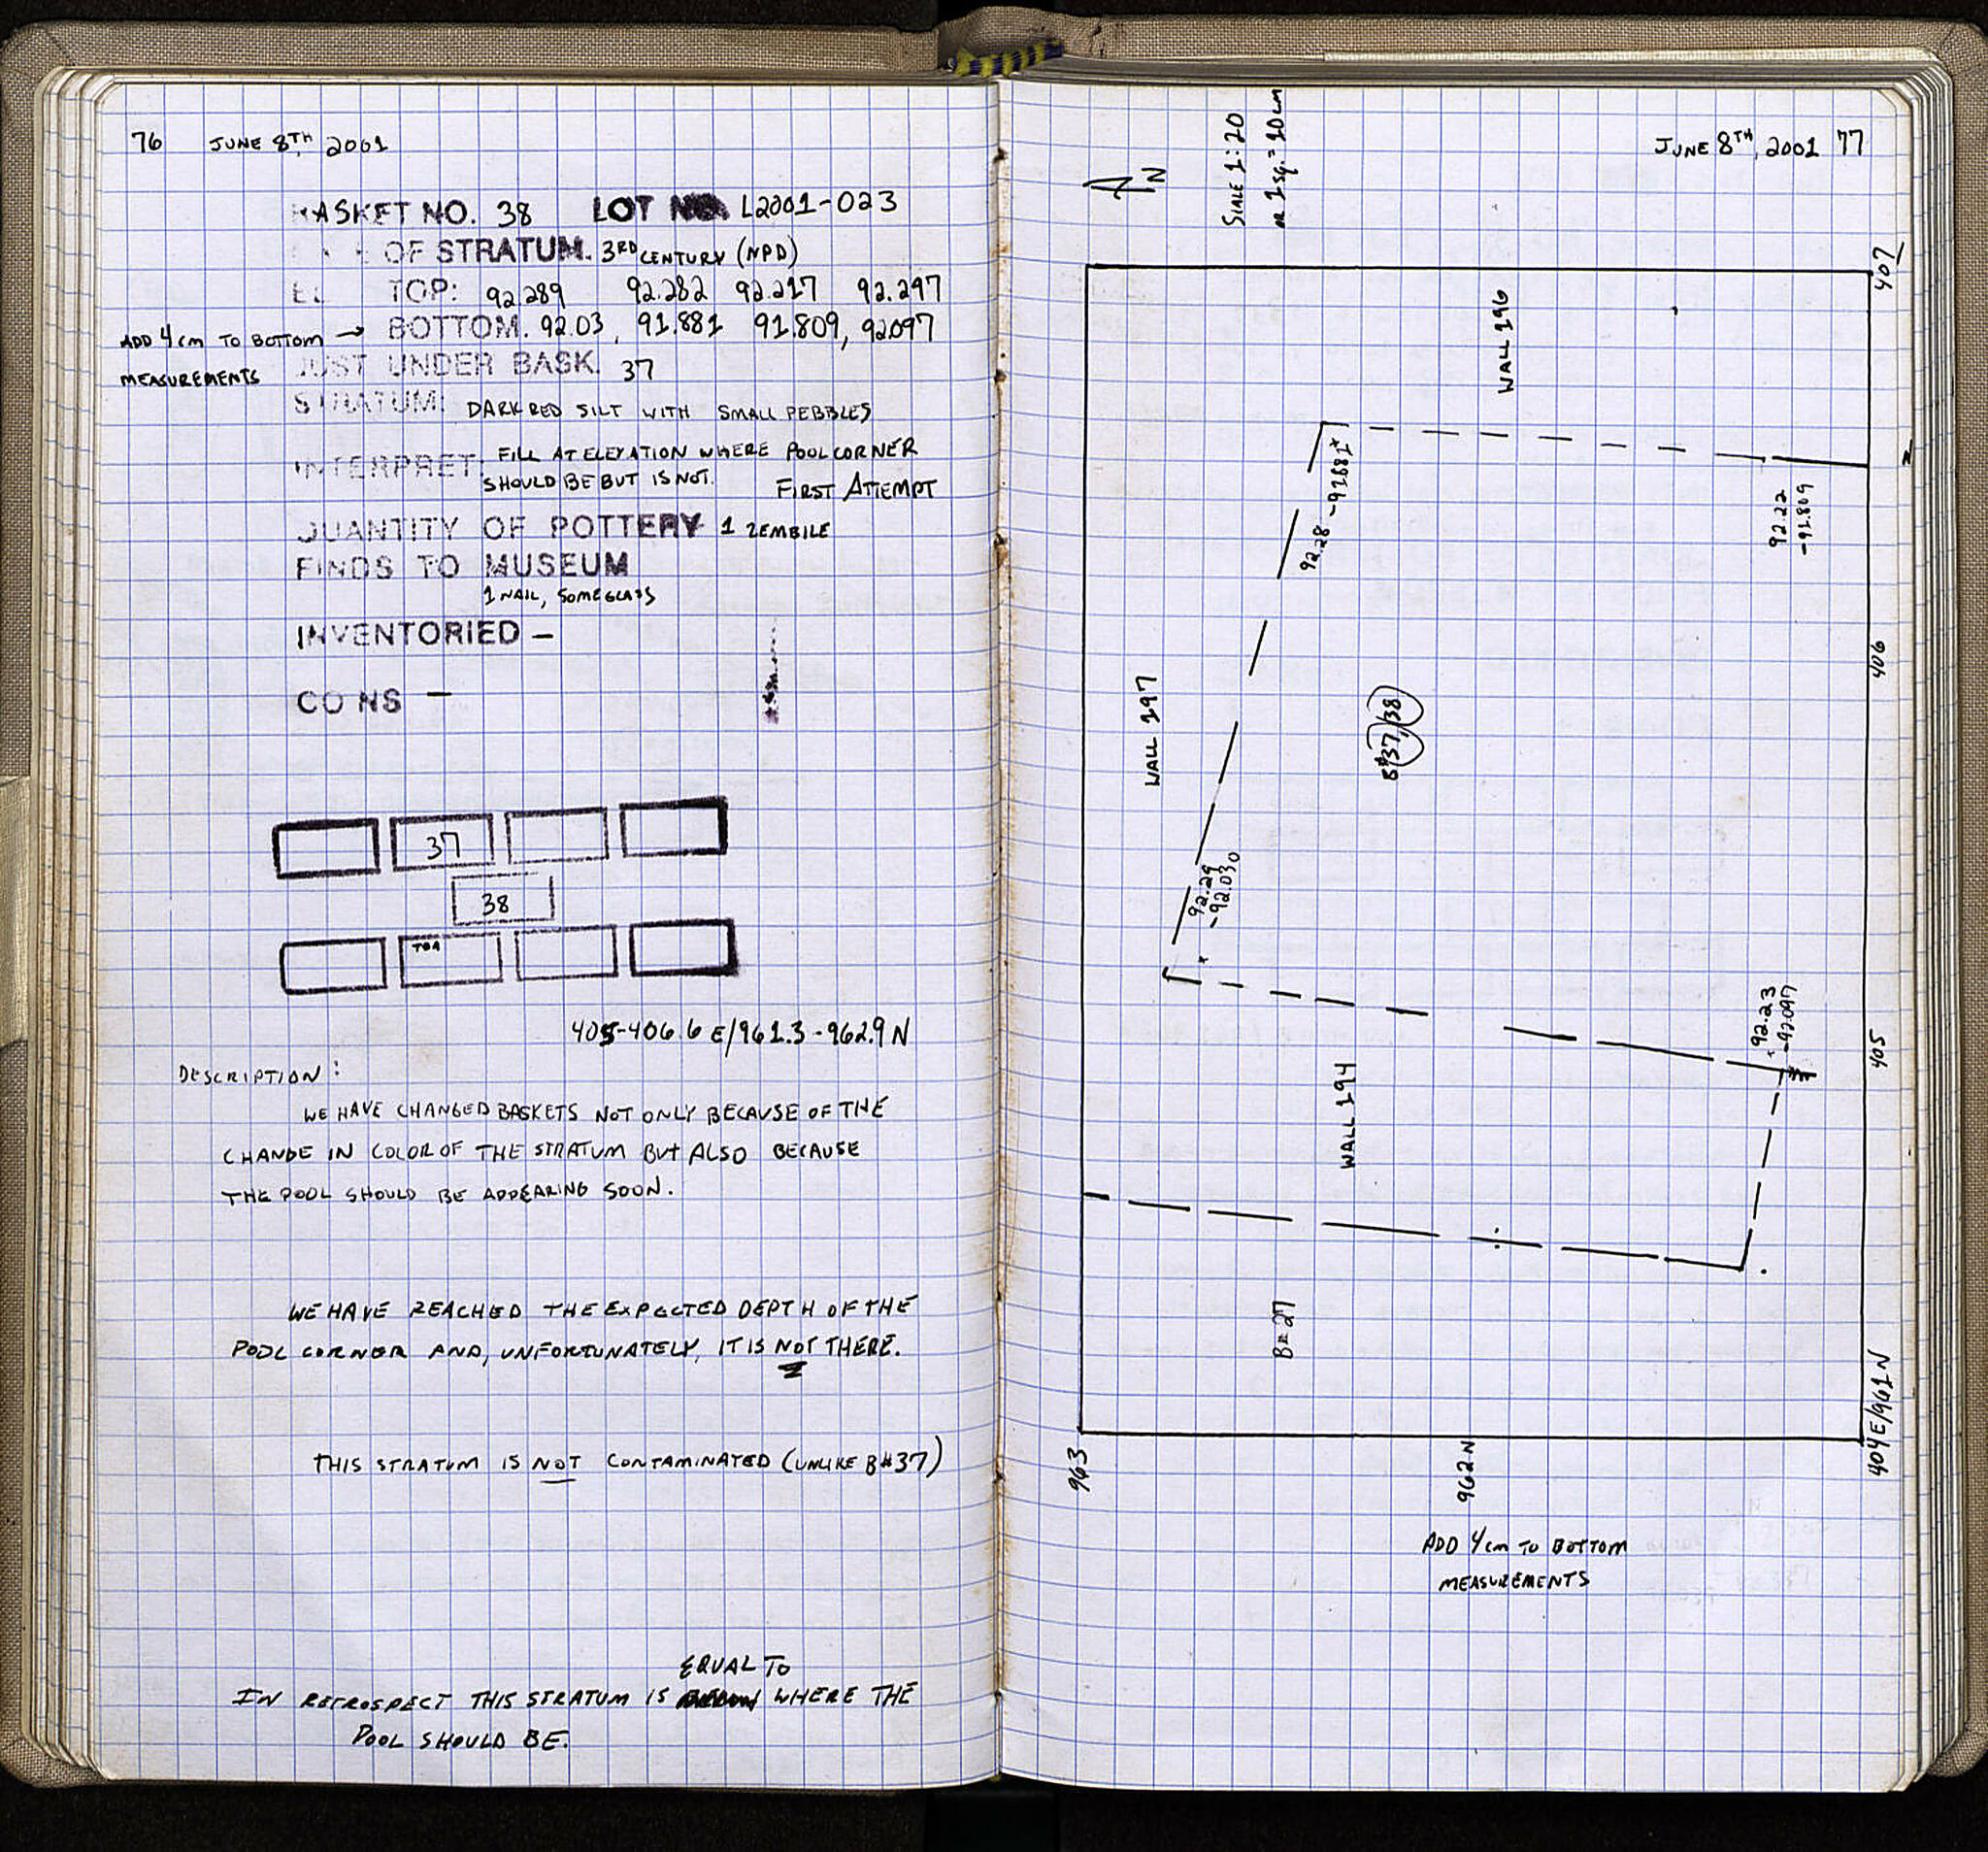 76 JUNE 8TH, 2001
BASKET NO. 38 LOT NO. L2001-023
OF STRATUM. 3RD CENTURY (NPD)
EL TOP: 92.289 92.282 92.217 92.297
ADD 4cm TO BOTTOM → BOTTOM. 92.03, 91.881 91.809, 92.097
MEASUREMENTS
JUST UNDER BASK. 37
STRATUM: DARK RED SILT WITH SMALL PEBBLES
INTERPRET: FILL AT ELEVATION WHERE POOL CORNER
SHOULD BE BUT IS NOT. FIRST ATTEMPT
QUANTITY OF POTTERY 1 ZEMBILE
FINDS TO MUSEUM
1 NAIL, SOME GLASS
INVENTORIED –
COINS –
37
38
TBA
405-406.6 E/961.3-962.9 N
DESCRIPTION:
WE HAVE CHANGED BASKETS NOT ONLY BECAUSE OF THE
CHANGE IN COLOR OF THE STRATUM BUT ALSO BECAUSE
THE POOL SHOULD BE APPEARING SOON.
WE HAVE REACHED THE EXPECTED DEPTH OF THE
POOL CORNER AND, UNFORTUNATELY, IT IS NOT THERE.
THIS STRATUM IS NOT CONTAMINATED (UNLIKE B#37)
EQUAL TO
IN RETROSPECT THIS STRATUM IS WHERE THE
POOL SHOULD BE.
JUNE 8TH, 2001 77
N
SCALE 1:20
OR 1 SQ. = 10 cm
407
WALL 196
92.28 -91.881
92.22
-91.809
406
WALL 197
B#37, 38
92.29
-92.030
92.23
-92.097
405
WALL 194
B#27
963
962 N
404 E/961 N
ADD 4cm TO BOTTOM
MEASUREMENTS